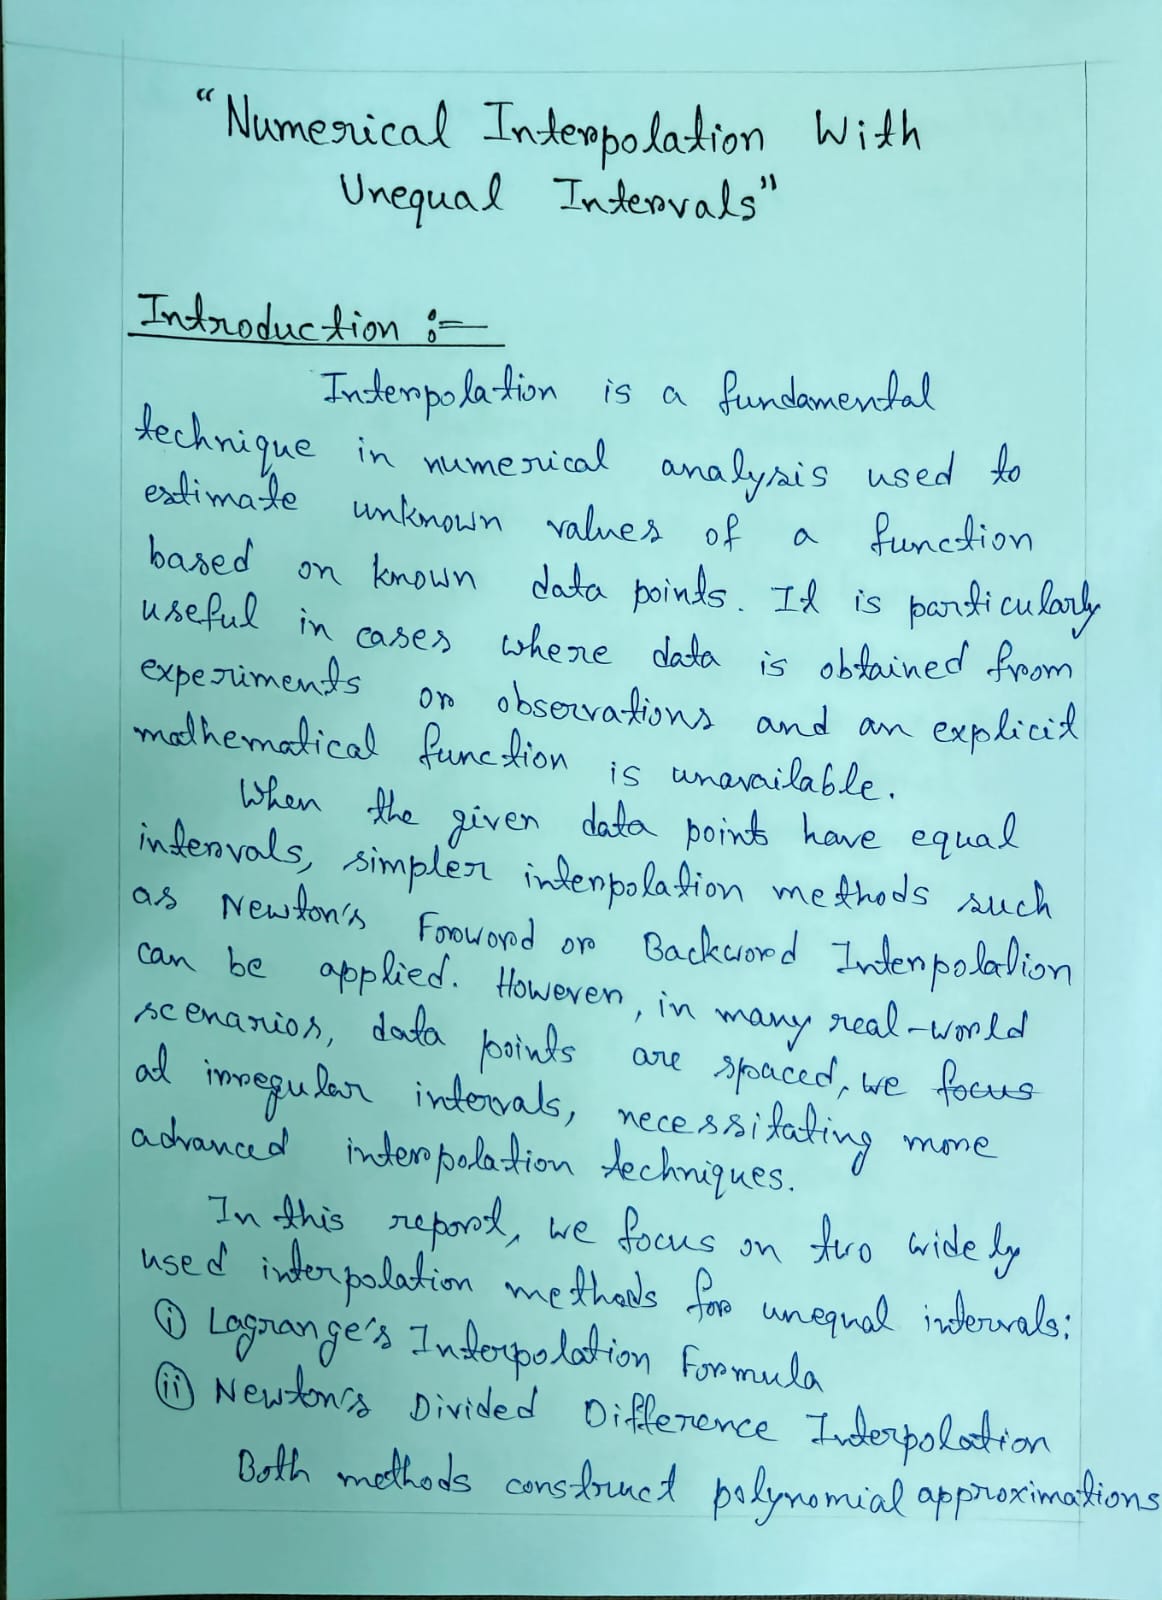 "Numerical Interpolation With
Unequal Intervals"
Introduction :-
Interpolation is a fundamental
technique in numerical analysis used to
estimate unknown values of a function
based on known data points. It is particularly
useful in cases where data is obtained from
experiments or observations and an explicit
mathematical function is unavailable.
When the given data points have equal
intervals, simpler interpolation methods such
as Newton's Forword or Backword Interpolation
can be applied. However, in many real-world
scenarios, data points are spaced, we focus
at irregular intervals, necessitating more
advanced interpolation techniques.
In this report, we focus on two widely
used interpolation methods for unequal intervals:
(i) Lagrange's Interpolation Formula
(ii) Newton's Divided Difference Interpolation
Both methods construct polynomial approximations